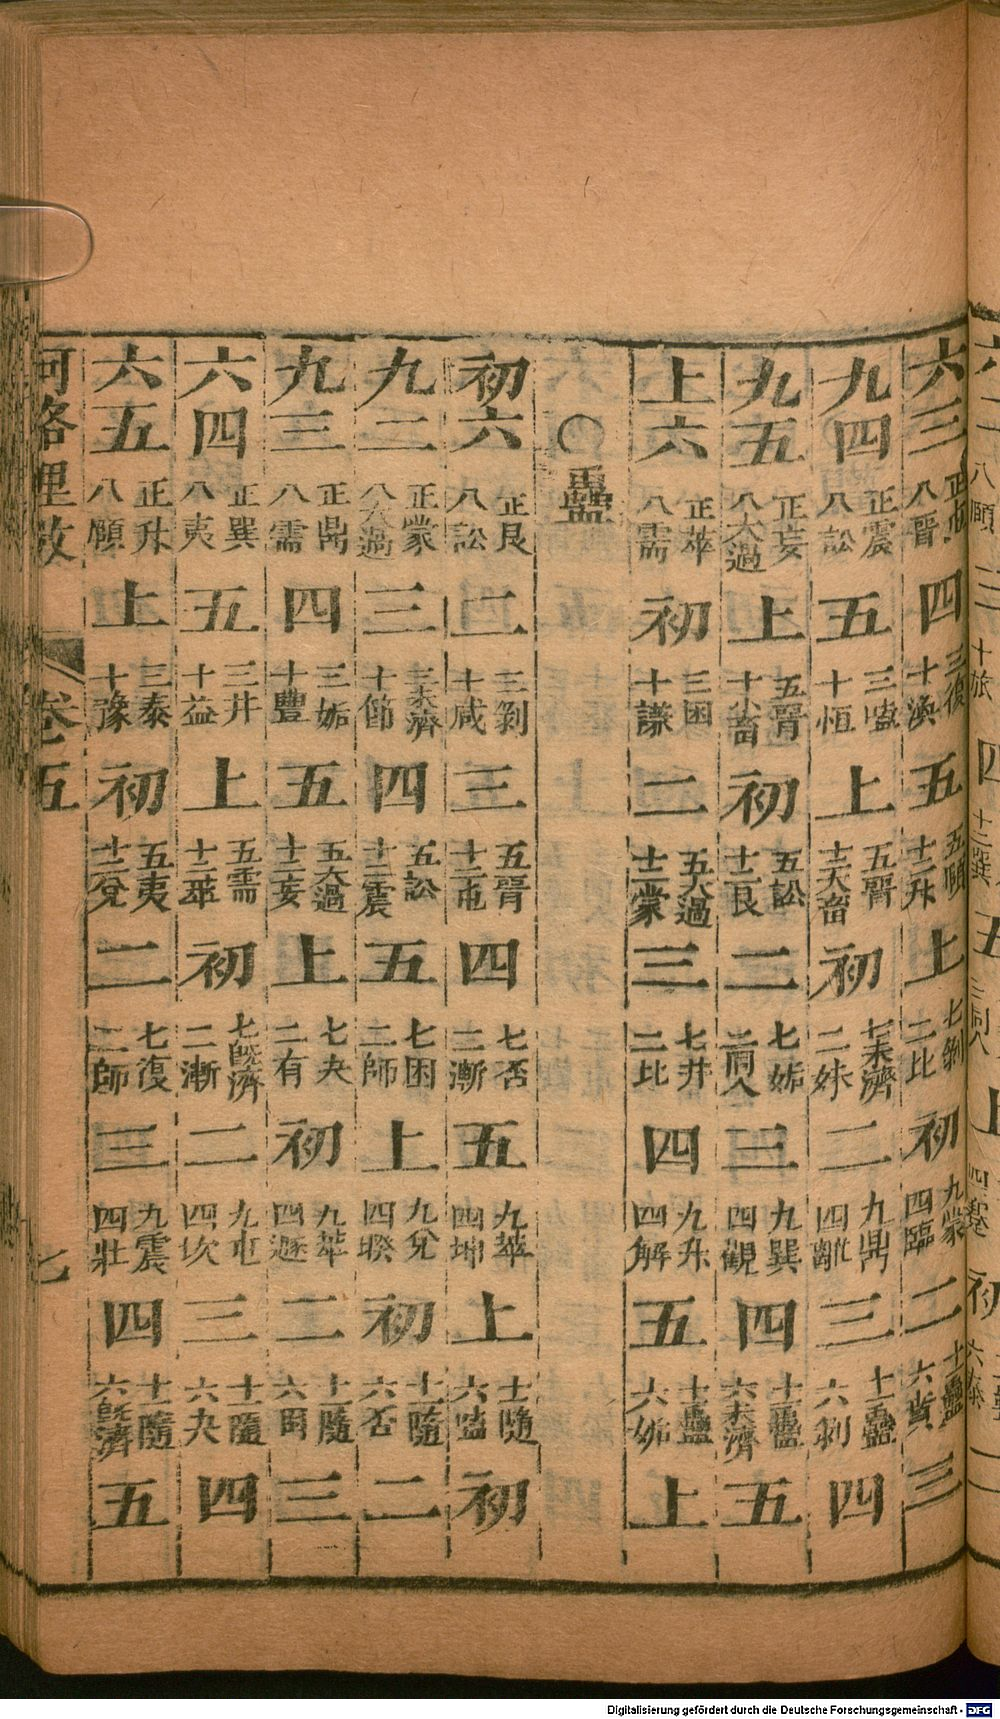 六三 正屯 八晉 四 三復 十渙 五 五頤 十二升 上 七剝 二比 初 九蒙 四臨 二 十一蠱 六賁 三
九四 正震 八訟 五 三嗑 十恒 上 五晉 十二大畜 初 七未濟 二妹 二 九鼎 四離 三 十一蠱 六剝 四
九五 正妄 八大過 上 五晉 十小畜 初 五訟 十二艮 二 七姤 二同人 三 九巽 四觀 四 十一蠱 六未濟 五
上六 正萃 八需 初 三困 十謙 二 五大過 十二蒙 三 七井 二比 四 九升 四解 五 十一蠱 六姤 上
○蠱
初六 正艮 八訟 二 三剝 十咸 三 五晉 十二屯 四 七否 二漸 五 九萃 四坤 上 十一隨 六嗑 初
九二 正蒙 八大過 三 三未濟 十節 四 五訟 十二震 五 七困 二師 上 九兌 四睽 初 十一隨 六否 二
九三 正鼎 八需 四 三姤 十豐 五 五大過 十二妄 上 七夬 二有 初 九萃 四遯 二 十一隨 六同 三
六四 正巽 八夷 五 三井 十益 上 五需 十二萃 初 七旣濟 二漸 二 九屯 四坎 三 十一隨 六夬 四
六五 正升 八頤 上 三泰 十豫 初 五夷 十二兌 二 七復 二師 三 九震 四壯 四 十一隨 六旣濟 五
河洛理數 卷五 七
Digitalisierung gefördert durch die Deutsche Forschungsgemeinschaft - DFG